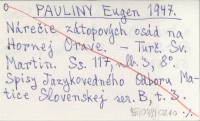 PAULINY Eugen 1947.
Nárečie zátopových osád na
Hornej Orave. – Turč. Sv.
Martin. Ss. 117, lb. 3, 8°.
Spisy Jazykovedného odboru Ma-
tice Slovenskej ser. B, t. 3.